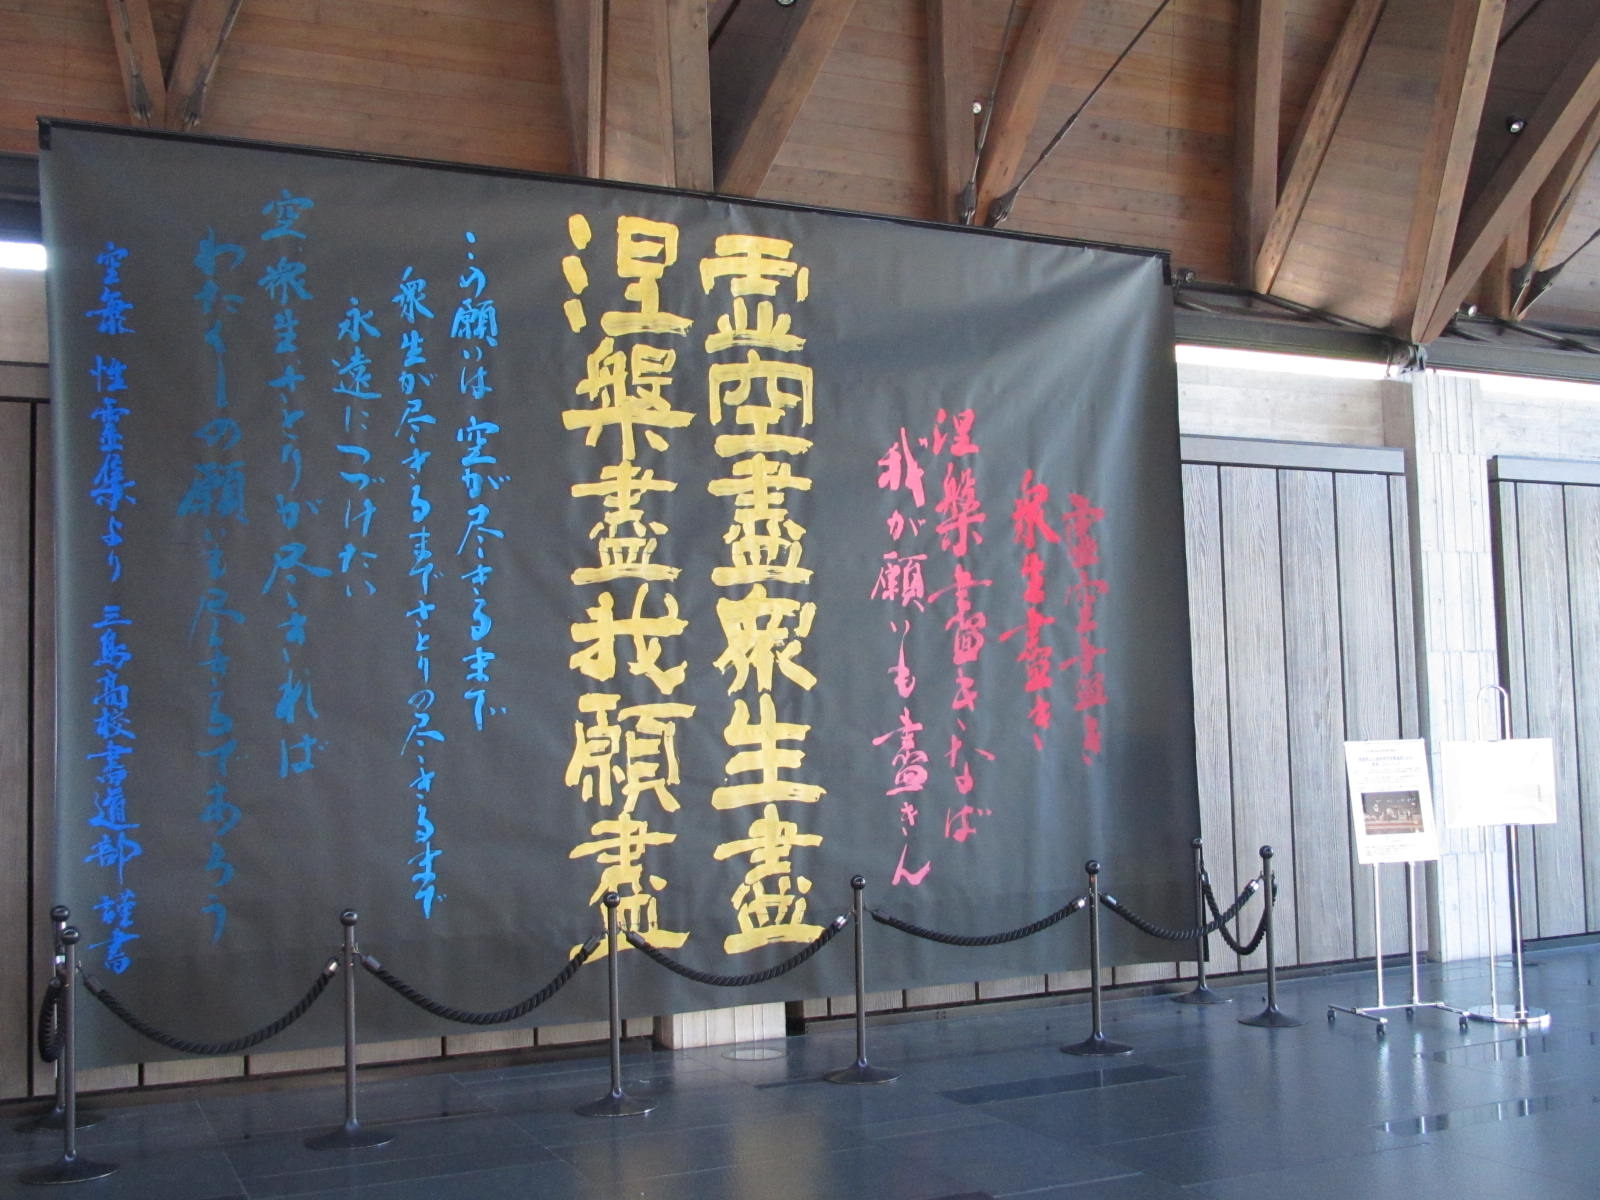 虚空盡き
衆生盡き
涅槃盡きなば
我が願いも盡きん
虚空盡衆生盡
涅槃盡我願盡
この願いは 空が尽きるまで
衆生が尽きるまでさとりの尽きるまで
永遠につづけたい
空、衆生、さとりが尽きれば
わたくしの願いも尽きるであろう
空海 性霊集より 三島高校書道部 謹書